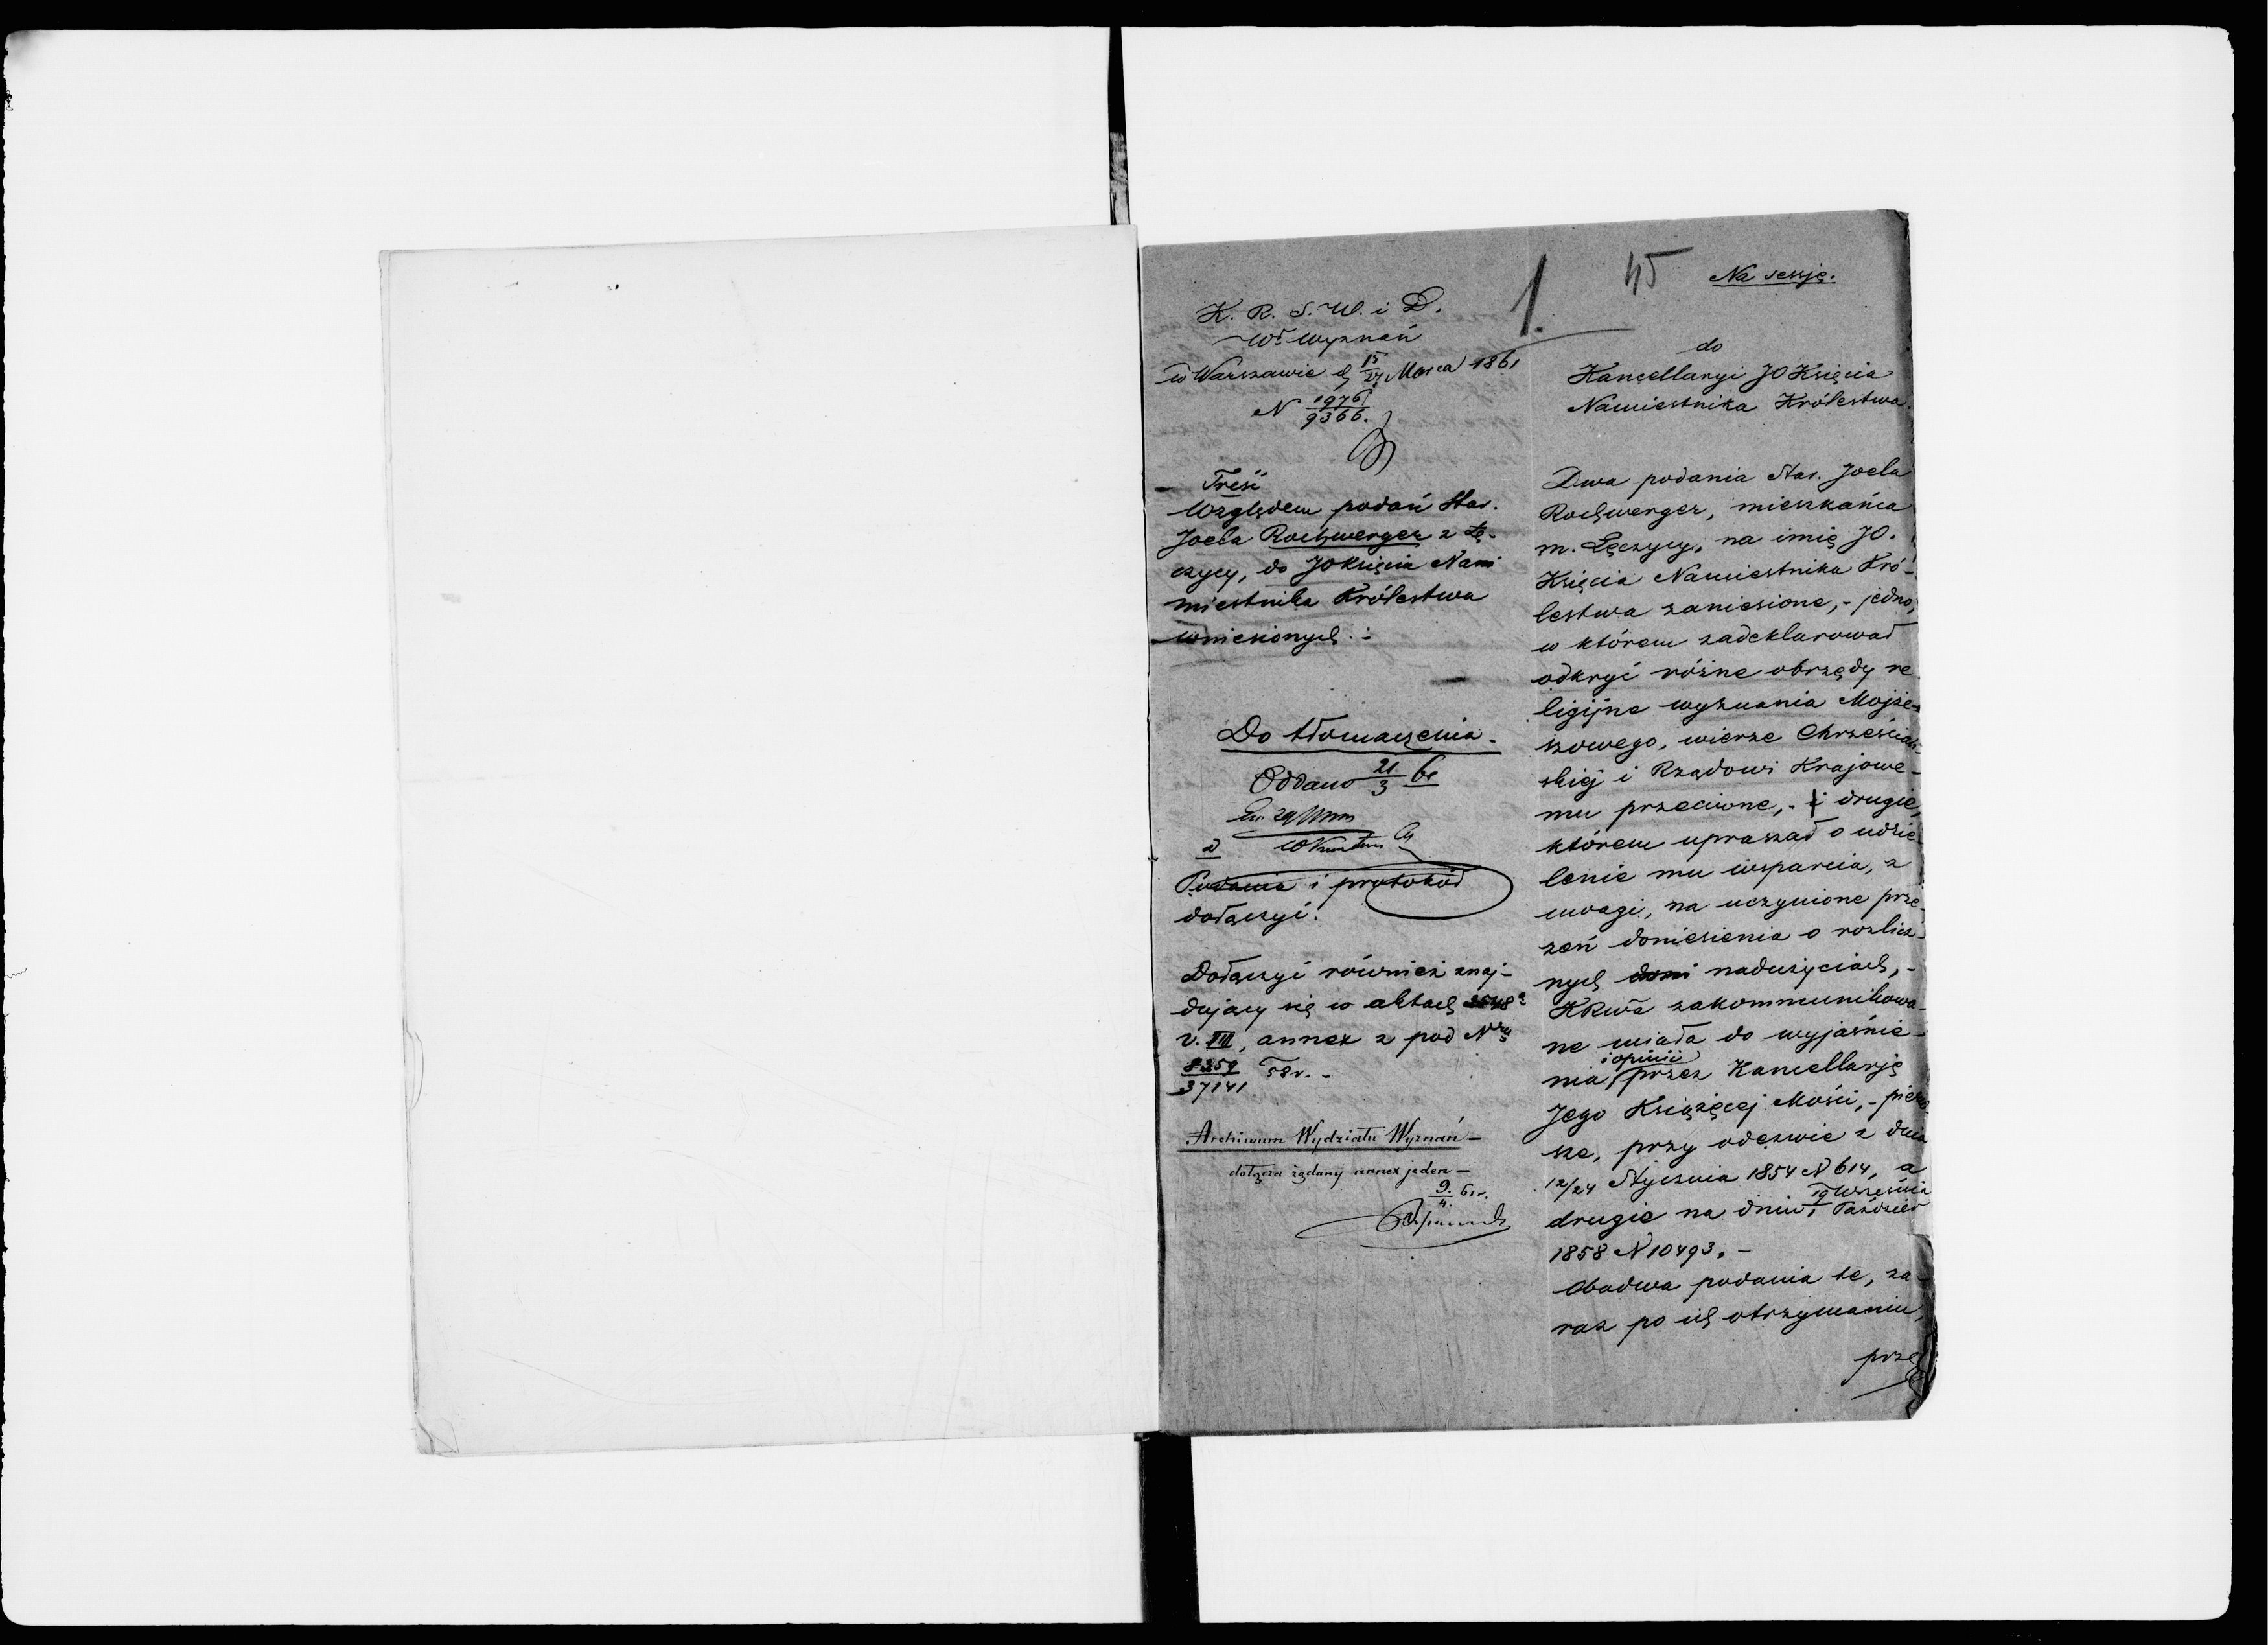 45
Na sessję.
1.
K. R. S. W. i D.
Wł Wyznań
w Warszawie d 15/27 Marca 1861
N 1976/9366.
Treść
Względem podań Star.
Joela Rochwerger z Łę-
czycy, do JOKsięcia Nami
miestnika Królestwa
wniesionych. -
Do tłomaczenia.
Oddano 21/3 61
Podania i protokół
dołączyć.
Dołączyć również znaj-
dujący się w aktach
v. III, annex z pod Nru
8359/37141 58 r. -
Archiwum Wydziału Wyznań -
dołącza żądany annex jeden -
9./4. 61 r.
do
Kancellaryi JO Księcia
Namiestnika Królestwa.
Dwa podania Star. Joela
Rochwerger, mieszkańca
m. Łęczycy, na imię JO.
Księcia Namiestnika Kró-
lestwa zaniesione, - jedno,
w którem zadeklarował
odkryć różne obrzędy re
ligijne wyznania Mojże-
szowego, wierze Chrześciań-
skiej i Rządowi Krajowe-
mu przeciwne, - i drugie,
którem upraszał o udzie
lenie mu wsparcia, z
uwagi, na uczynione prze-
zeń doniesienia o rozlicz-
nych doni nadużyciach, -
KRwa zakommunikowa-
ne miała do wyjaśnie-
i opinii
nia, przez Kancellarję
Jego Książęcej Mości, - pierw
sze, przy odezwie z dnia
12/24 Stycznia 1854 N 614, a
19 Września
drugie na dniu 1 Paździer
1858 N 10493. -
Obadwa podania te, za-
raz po ich otrzymaniu,
prze